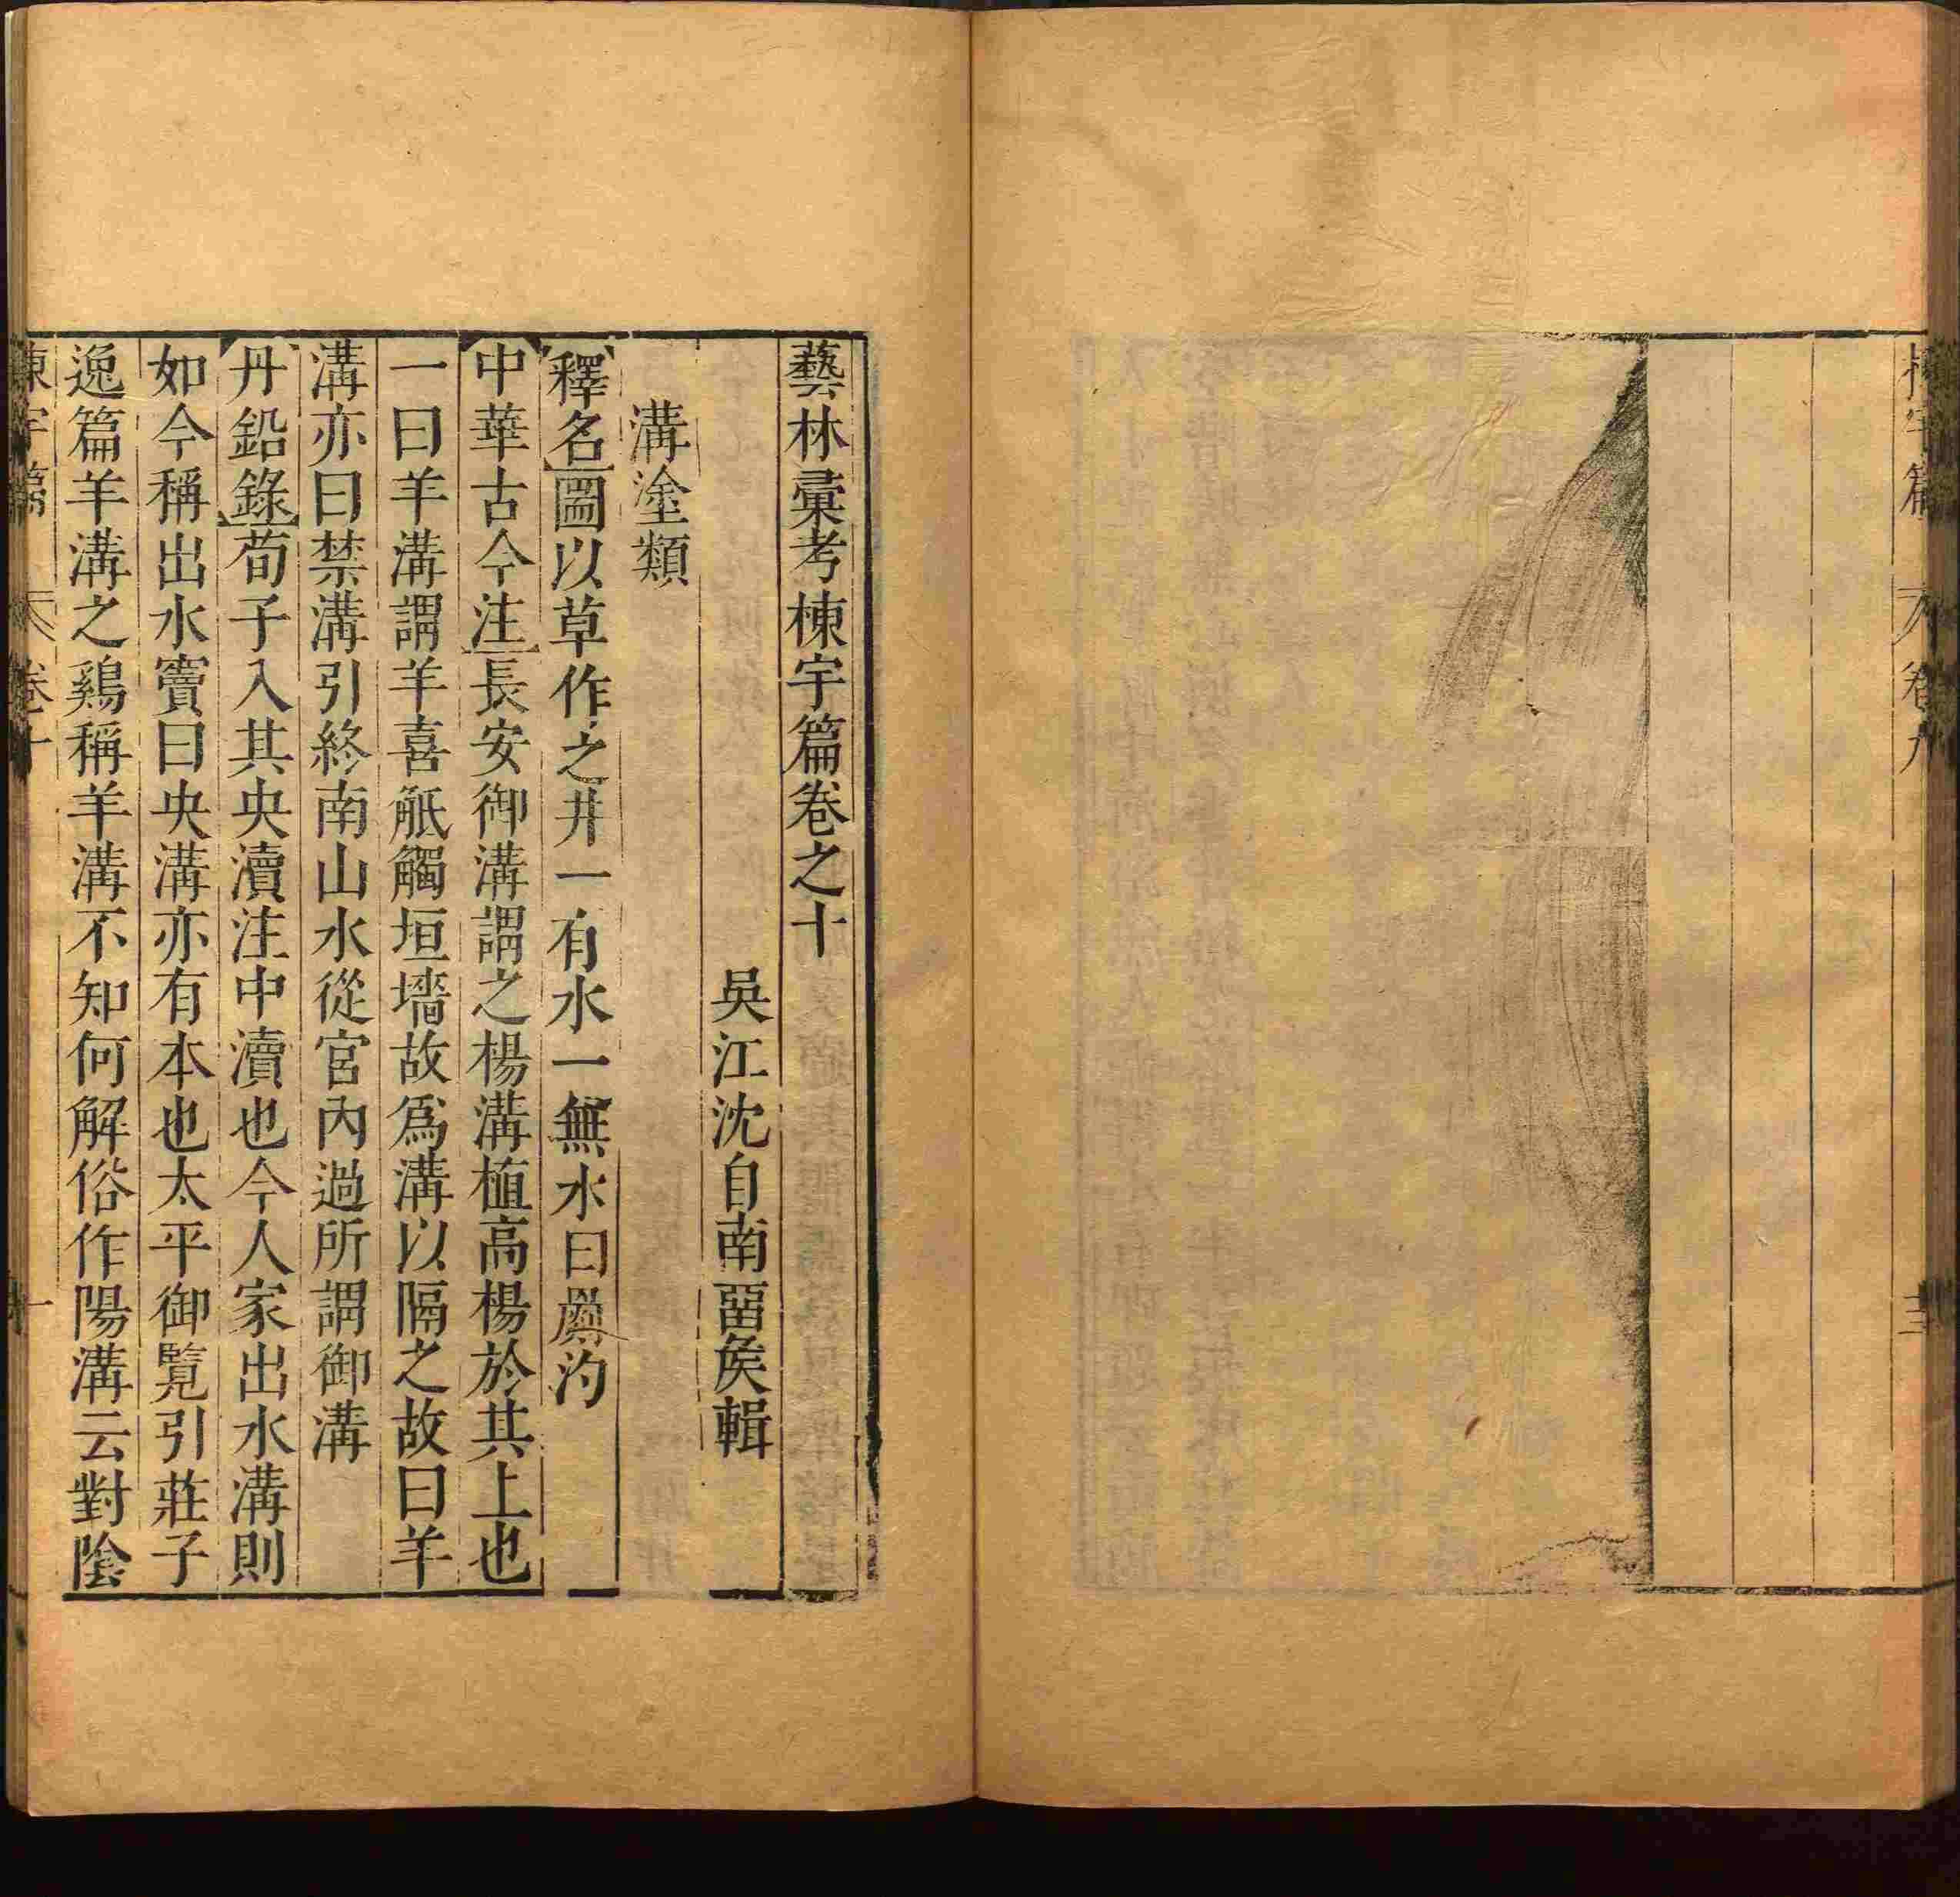 棟宇篇 卷九
藝林彙考棟宇篇卷之十
吳江沈自南畱矦輯
溝塗類
釋名圊以草作之井一有水一無水曰𤄷汋
中華古今注長安御溝謂之楊溝植高楊於其上也
一曰羊溝謂羊喜觝觸垣墻故爲溝以隔之故曰羊
溝亦曰禁溝引終南山水從宮內過所謂御溝
丹鉛錄荀子入其央瀆注中瀆也今人家出水溝則
如今稱出水竇曰央溝亦有本也太平御覽引莊子
逸篇羊溝之鷄稱羊溝不知何解俗作陽溝云對陰
棟宇篇 卷十 一